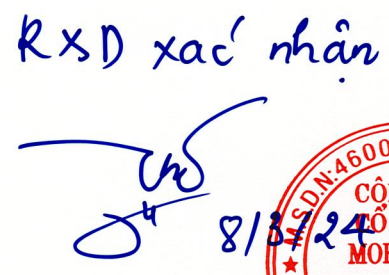 RXD xác nhận
8/3/24
M.S.D.N:4600
CÔ
CỔ